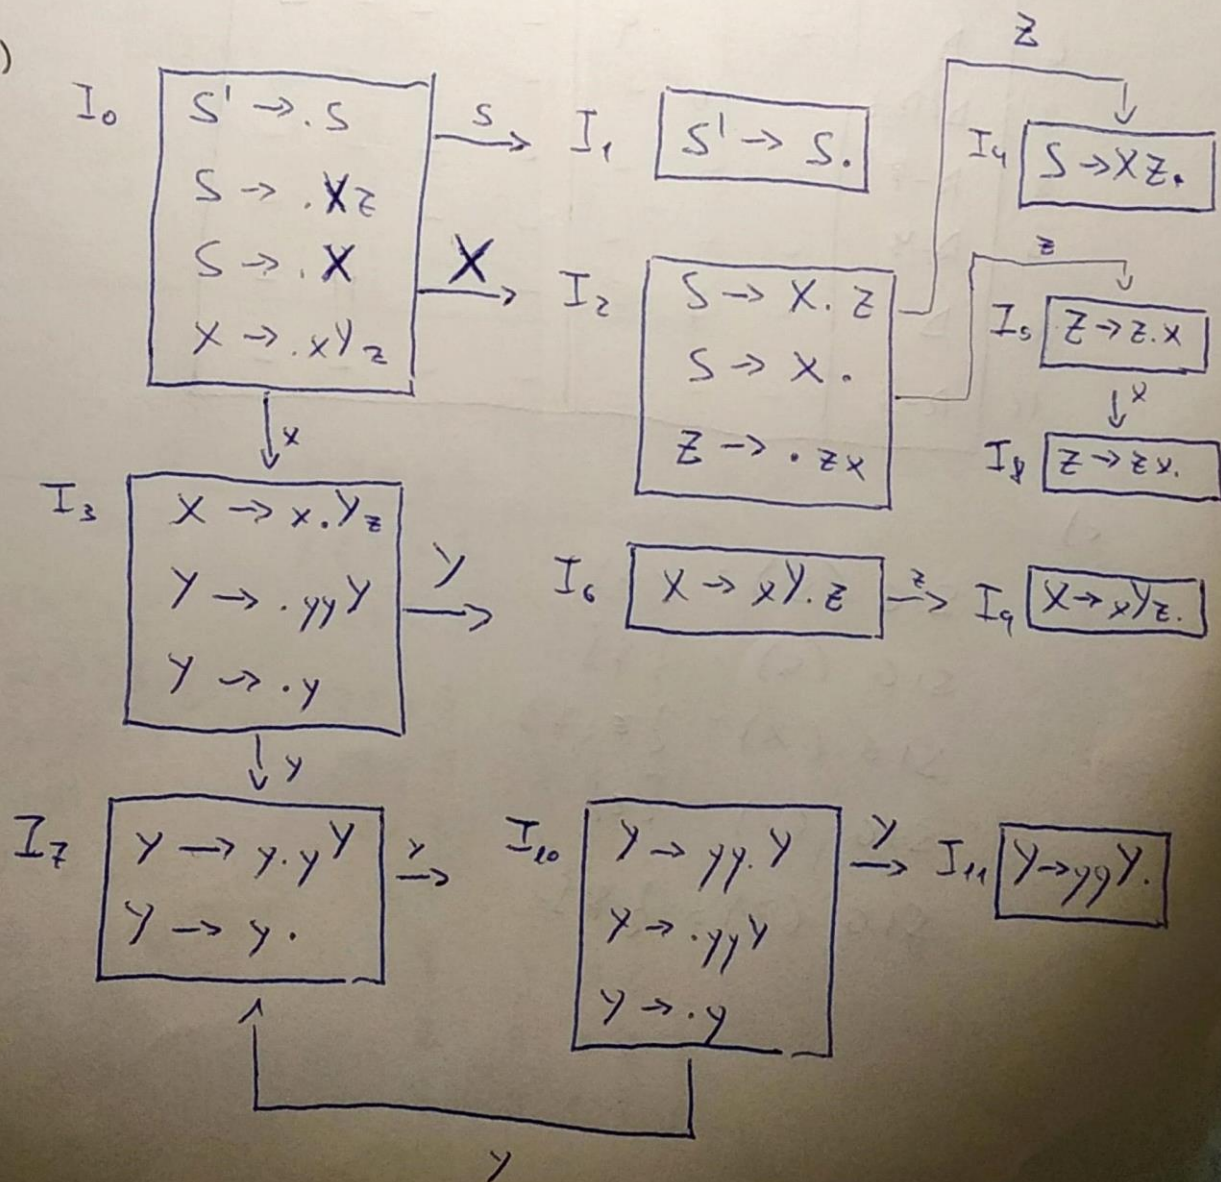 )
I₀
S' → .S
S → .Xz
S → .X
X → .xYz
S
X
x
I₁
S' → S.
I₂
S → X.Z
S → X.
Z → .zx
Z
I₄
S → XZ.
z
I₅
Z → z.x
x
I₈
Z → zx.
I₃
X → x.Yz
Y → .yyY
Y → .y
Y
I₆
X → xY.z
z
I₉
X → xYz.
y
I₇
Y → y.yY
Y → y.
y
I₁₀
Y → yy.Y
Y → .yyY
Y → .y
Y
I₁₁
Y → yyY.
y